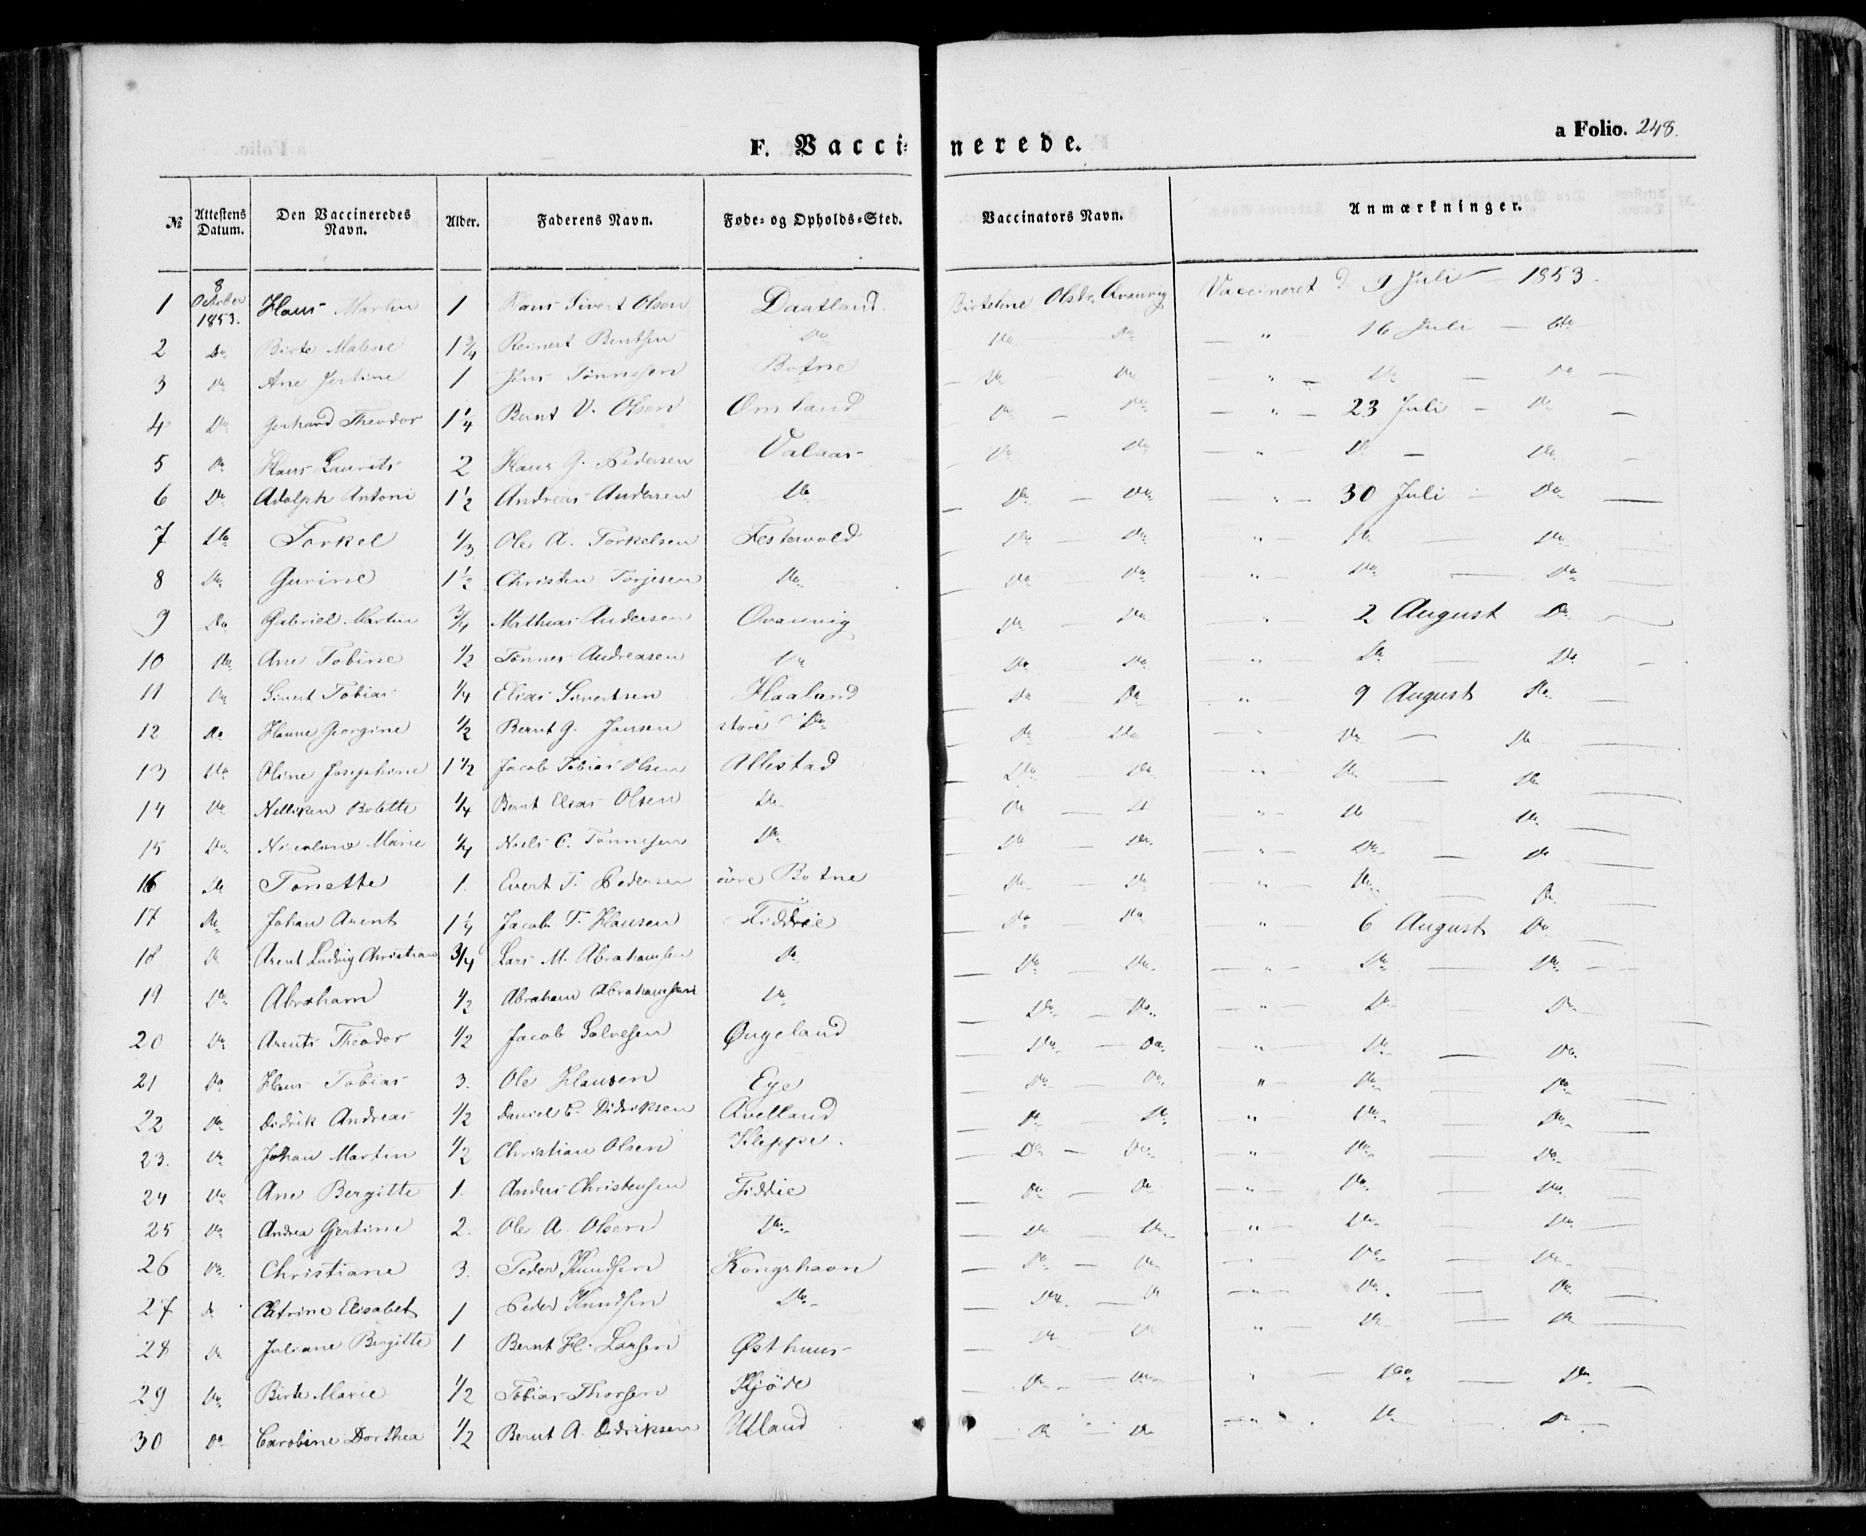 a Folio. 248.
F. Vaccinerede.
№ Attestens Datum. Den Vaccineredes Navn. Alder. Faderens Navn. Føde- og Opholds-Sted. Vaccinators Navn. Anmærkninger.
1 8 October 1853. Hans Martin 1 Hans Sivert Olsen Daatland. Birteline Olsdr. Qvanvig Vaccineret d 9 Juli 1853.
2 Do Birte Malene 1 3/4 Reinert Bentsen Do Do Do " 16 Juli — Do
3 Do Ane Jertine 1 Jens Tønnesen Botne Do Do " Do — Do
4 Do Gerhard Theodor 1 1/4 Bernt V. Olsen Omland Do Do " 23 Juli — Do
5 Do Hans Laurits 2 Hans G. Pedersen Valaas Do Do " Do — Do
6 Do Adolph Antoni 1 1/2 Andreas Andersen Do Do Do " 30 Juli Do
7 Do Torkel 1/3 Ole A. Torkelsen Festervold Do Do " Do Do
8 Do Gurine 1 1/2 Christen Torjesen Do Do Do " Do — Do
9 Do Gabriel Martin 3/4 Mathias Andersen Qvanvig Do Do " 2 August Do
10 Do Ane Tobine 1/2 Tønnes Andreasen Do Do Do " Do — Do
11 Do Sivert Tobias 1/4 Elias Sivertsen Haaland Do Do " 9 August Do
12 Do Hanne Georgine 1/2 Bernt G. Jansen store Do Do Do " Do — Do
13 Do Oline Josephine 1 1/2 Jacob Tobias Olsen Allestad Do Do " Do — Do
14 Do Nelliken Bolette 1/4 Bernt Elias Olsen Do Do Do " Do Do
15 Do Nicoline Marie 1/4 Niels C. Tønnesen Do Do Do " Do — Do
16 Do Tonette 1. Evert T. Pedersen övre Botne Do Do " Do Do
17 Do Johan Arent 1 1/4 Jacob T. Hansen Fiddie Do Do " 6 August Do
18 Do Arent Ludvig Christian 3/4 Lars M. Abrahamsen Do Do Do " Do — Do
19 Do Abraham 1/2 Abraham Abrahamsen Do Do Do " Do — Do
20 Do Arents Theodor 1/2 Jacob Salvesen Øugeland Do Do " Do — Do
21 Do Hans Tobias 3. Ole Hansen Eye Do Do " Do — Do
22 Do Didrik Andreas 1/2 Daniel C. Didriksen Qvelland Do Do " Do — Do
23. Do Johan Martin 1/2 Christian Olsen Kleppe. Do — Do " Do — Do
24 Do Ane Bergitte 1. Anders Christensen Fiddie Do Do " Do — Do
25 Do Andrea Gjertine 2. Ole A. Olsen Do Do Do " Do — Do
26 Do Christiane 3. Peder Knudsen Kongshavn Do Do " Do — Do
27 Do Cathrine Elisabet 1 Peder Knudsen Do Do Do " Do. Do
28 Do Juliane Bergitte 1 Bernt H. Larsen Østhuus Do Do " Do — Do
29 Do Birte Marie 1/2 Tobias Thorsen Kjöde Do Do " Do Do
30 Do Caroline Dorthea 1/2 Bernt A. Didriksen Utland Do Do " Do — Do